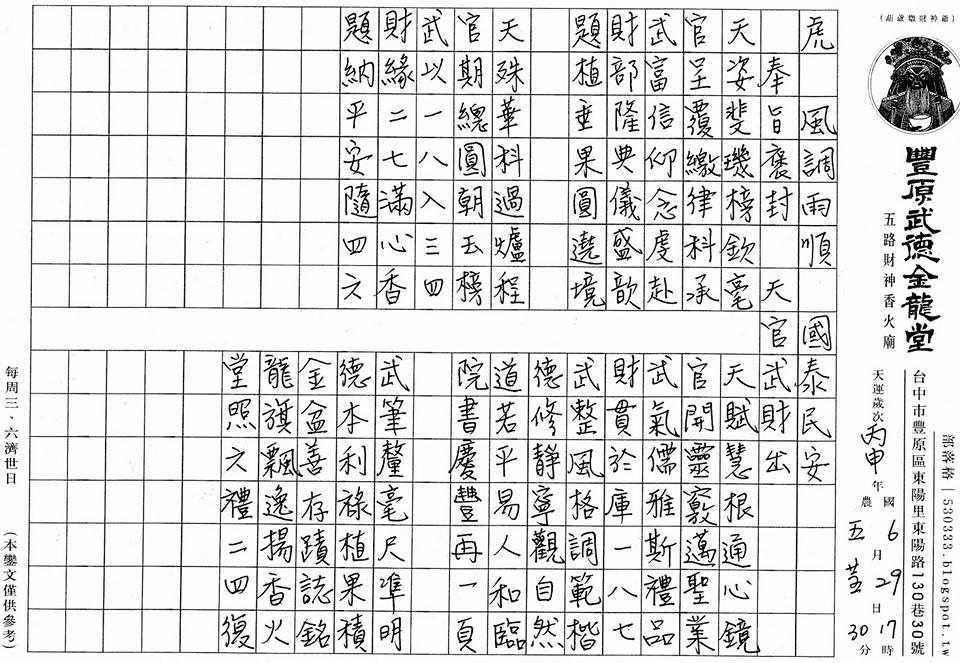 (葫蘆墩財神爺)
豐原武德金龍堂
五路財神香火廟
部落格|530333.blogspot.tw
台中市豐原區東陽里東陽路130巷30號
天運歲次丙申年
國6月29日17時30分
農五
虎 風調雨順 國泰民安
奉旨褒封 天官武財出
天姿斐璣榜欽毫
官呈覆繳律科承
武富信仰念虔赴
財部隆典儀盛歆
題植垂果圓遶境
天殊華科過爐程
官期總圓朝玉榜
武以一八入三四
財緣二七滿心香
題納平安隨四六
天賦慧根通心鏡
官開靈竅邁聖業
武氣儒雅斯禮品
財貫於庫一八七
武整風格調範楷
德修靜寧觀自然
道若平易人和臨
院書慶豐再一頁
武筆釐毫尺準明
德本利祿植果積
金盆善存蹟誌銘
龍旗飄逸揚香火
堂照六禮二四復
每周三、六濟世日
(本鑾文僅供參考)